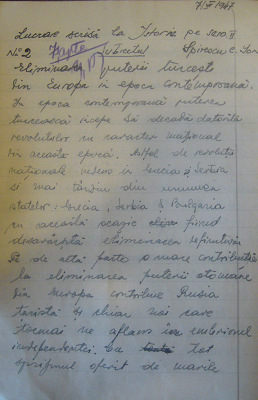 7/II 1947
Lucrare scrisă la Istorie pe sem. II
No 2 Subiectul Spirescu C. Ion
Eliminarea puterii turcești
din Europa în epoca contemporană.
În epoca contemporană puterea
turcească începe să decadă datorită
revoluțiilor cu caracter național
din această epocă. Astfel de revoluții
naționale vedem în Grecia și Serbia
și mai târziu din uniunea
statelor: Grecia, Serbia și Bulgaria
cu această ocazie fiind
desăvârșită eliminarea definitivă
Pe de altă parte o mare contribuție
la eliminarea puterii otomane
din Europa contribue Rusia
țaristă și chiar noi care
tocmai ne aflam în embrionul
independentei. Cu tot
sprijinul oferit de marile